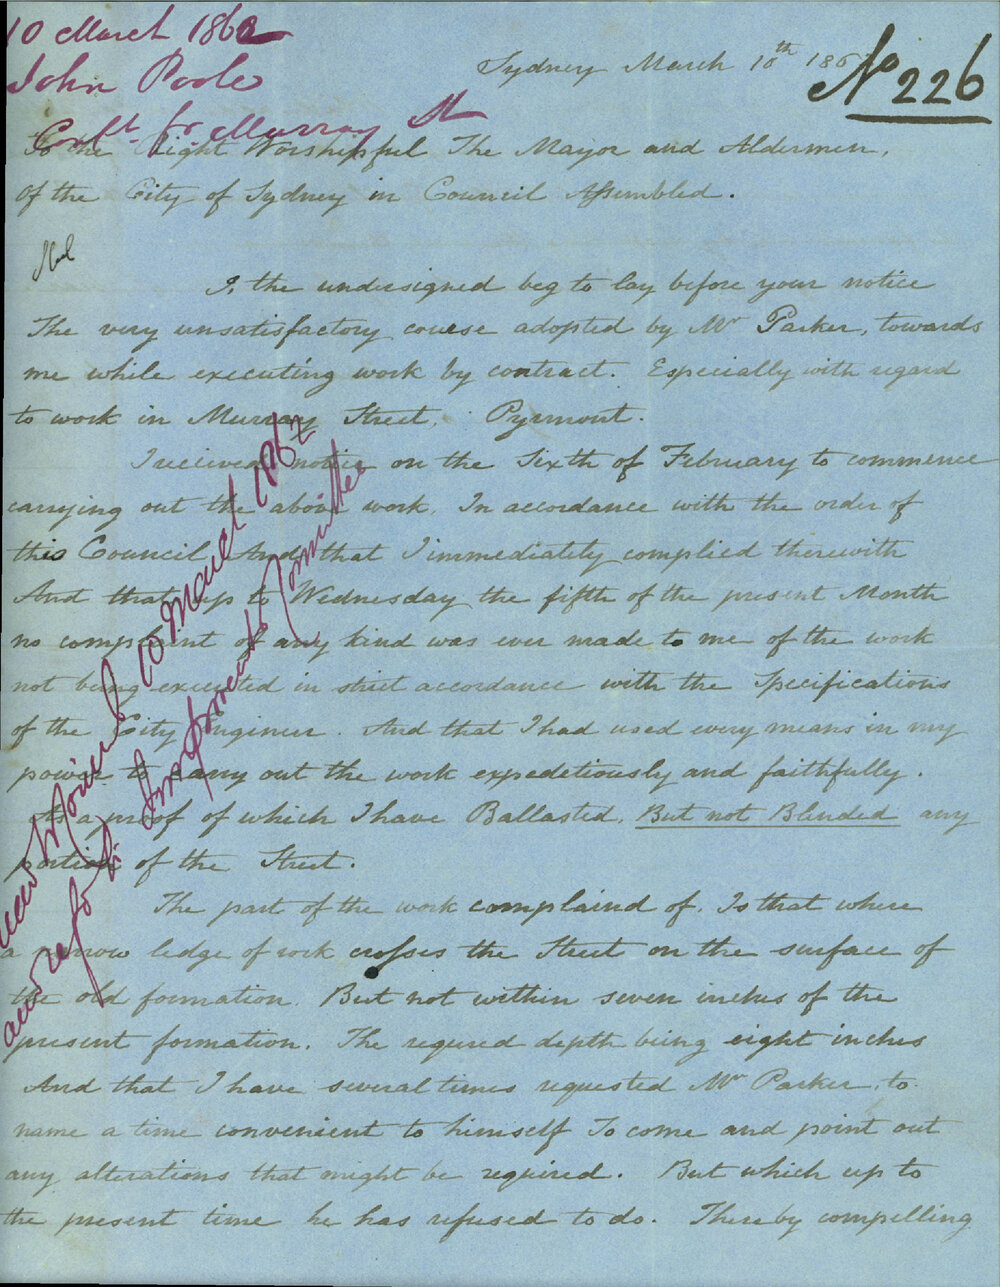 10 March 1862
John Poole
Cont. for Murray St
No 226
Sydney March 10th 186
To the Right Worshipful The Mayor and Aldermen,
Of the City of Sydney in Council Assembled.
I, the undersigned beg to lay before your notice
The very unsatisfactory course adopted by Mr Parker, towards
me while executing work by contract. Especially with regard
to work in Murray Street, Pyrmont.
I received notice on the Sixth of February to commence
carrying out the above work, In accordance with the order of
this Council And that I immediately complied therewith
And that up to Wednesday the fifth of the present Month
no complaint of any kind was ever made to me of the work
not being executed in strict accordance with the Specifications
of the City Engineer. And that I had used every means in my
power to carry out the work expeditiously and faithfully.
As a proof of which I have Ballasted, But not Blinded any
portion of the Street.
The part of the work complaind of, Is that where
a narrow ledge of rock crosses the Street on the surface of
the old formation. But not within seven inches of the
present formation. The requred depth being eight inches
And that I have several times requested Mr Parker, to
name a time convenient to himself To come and point out
any alterations that might be required. But which up to
the present time he has refused to do. Thereby compelling
10 March 1862
and refd to Improvements Committee